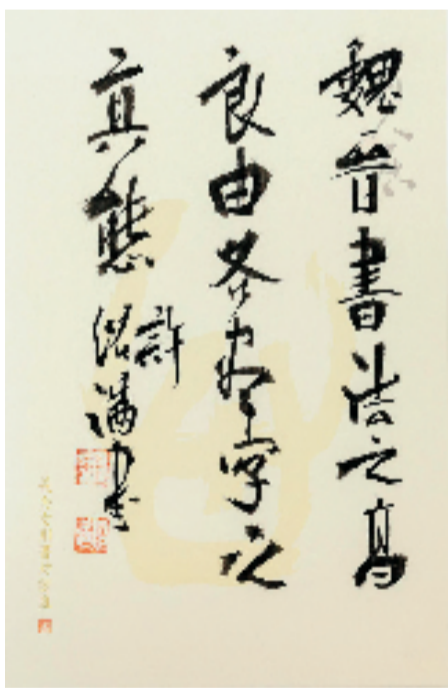 魏晉書法之高
良由各盡字之
真態
許
滿書